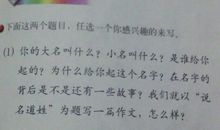 下面这两个题目，任选一个你感兴趣的来写。
(1) 你的大名叫什么？小名叫什么？是谁给你
起的？为什么给你起这个名字？在名字的
背后是不是还有一些故事？我们就以“说
名道姓”为题写一篇作文，怎么样？